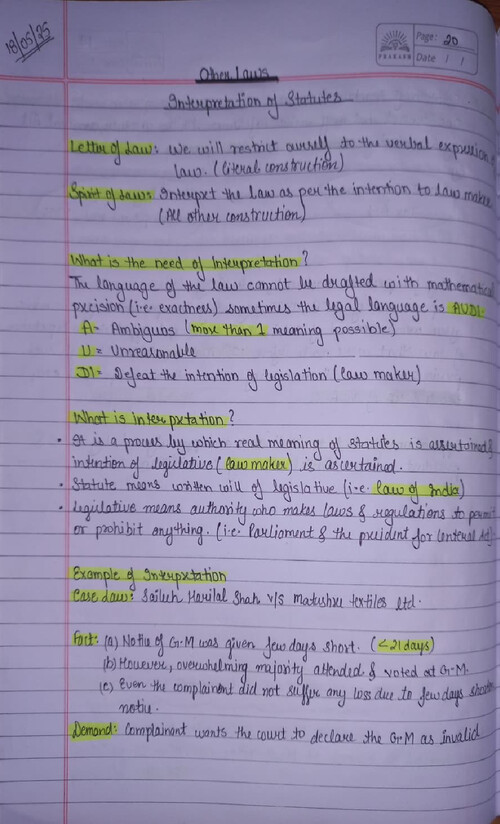 18/05/25
PRAKASH
Page: 20
Date / /
Other Laws
Interpretation of Statutes
Letter of Law: We will restrict ourself to the verbal expression
law. (literal construction)
Spirit of Law: Interpret the law as per the intention to law maker
(All other construction)
What is the need of Interpretation?
The language of the law cannot be drafted with mathematical
precision (i.e. exactness) sometimes the legal language is AUDI.
A = Ambigous (more than 1 meaning possible)
U = Unreasonable
DI = Defeat the intention of legislation (law maker)
What is interpretation?
• It is a process by which real meaning of statutes is ascertained &
intention of legislative (law maker) is ascertained.
• Statute means written will of legislative (i.e. law of India)
• Legislative means authority who makes laws & regulations to permit
or prohibit anything. (i.e. Parliament & the president for Central Act)
Example of Interpretation
Case Law: Sailesh Harilal Shah v/s Matushree textiles ltd.
Fact: (a) Notice of G.M was given few days short. (<21 days)
(b) However, overwhelming majority attended & voted at G.M.
(c) Even the complainent did not suffer any loss due to few days shorter
notice.
Demand: Complainant wants the court to declare the G.M as invalid